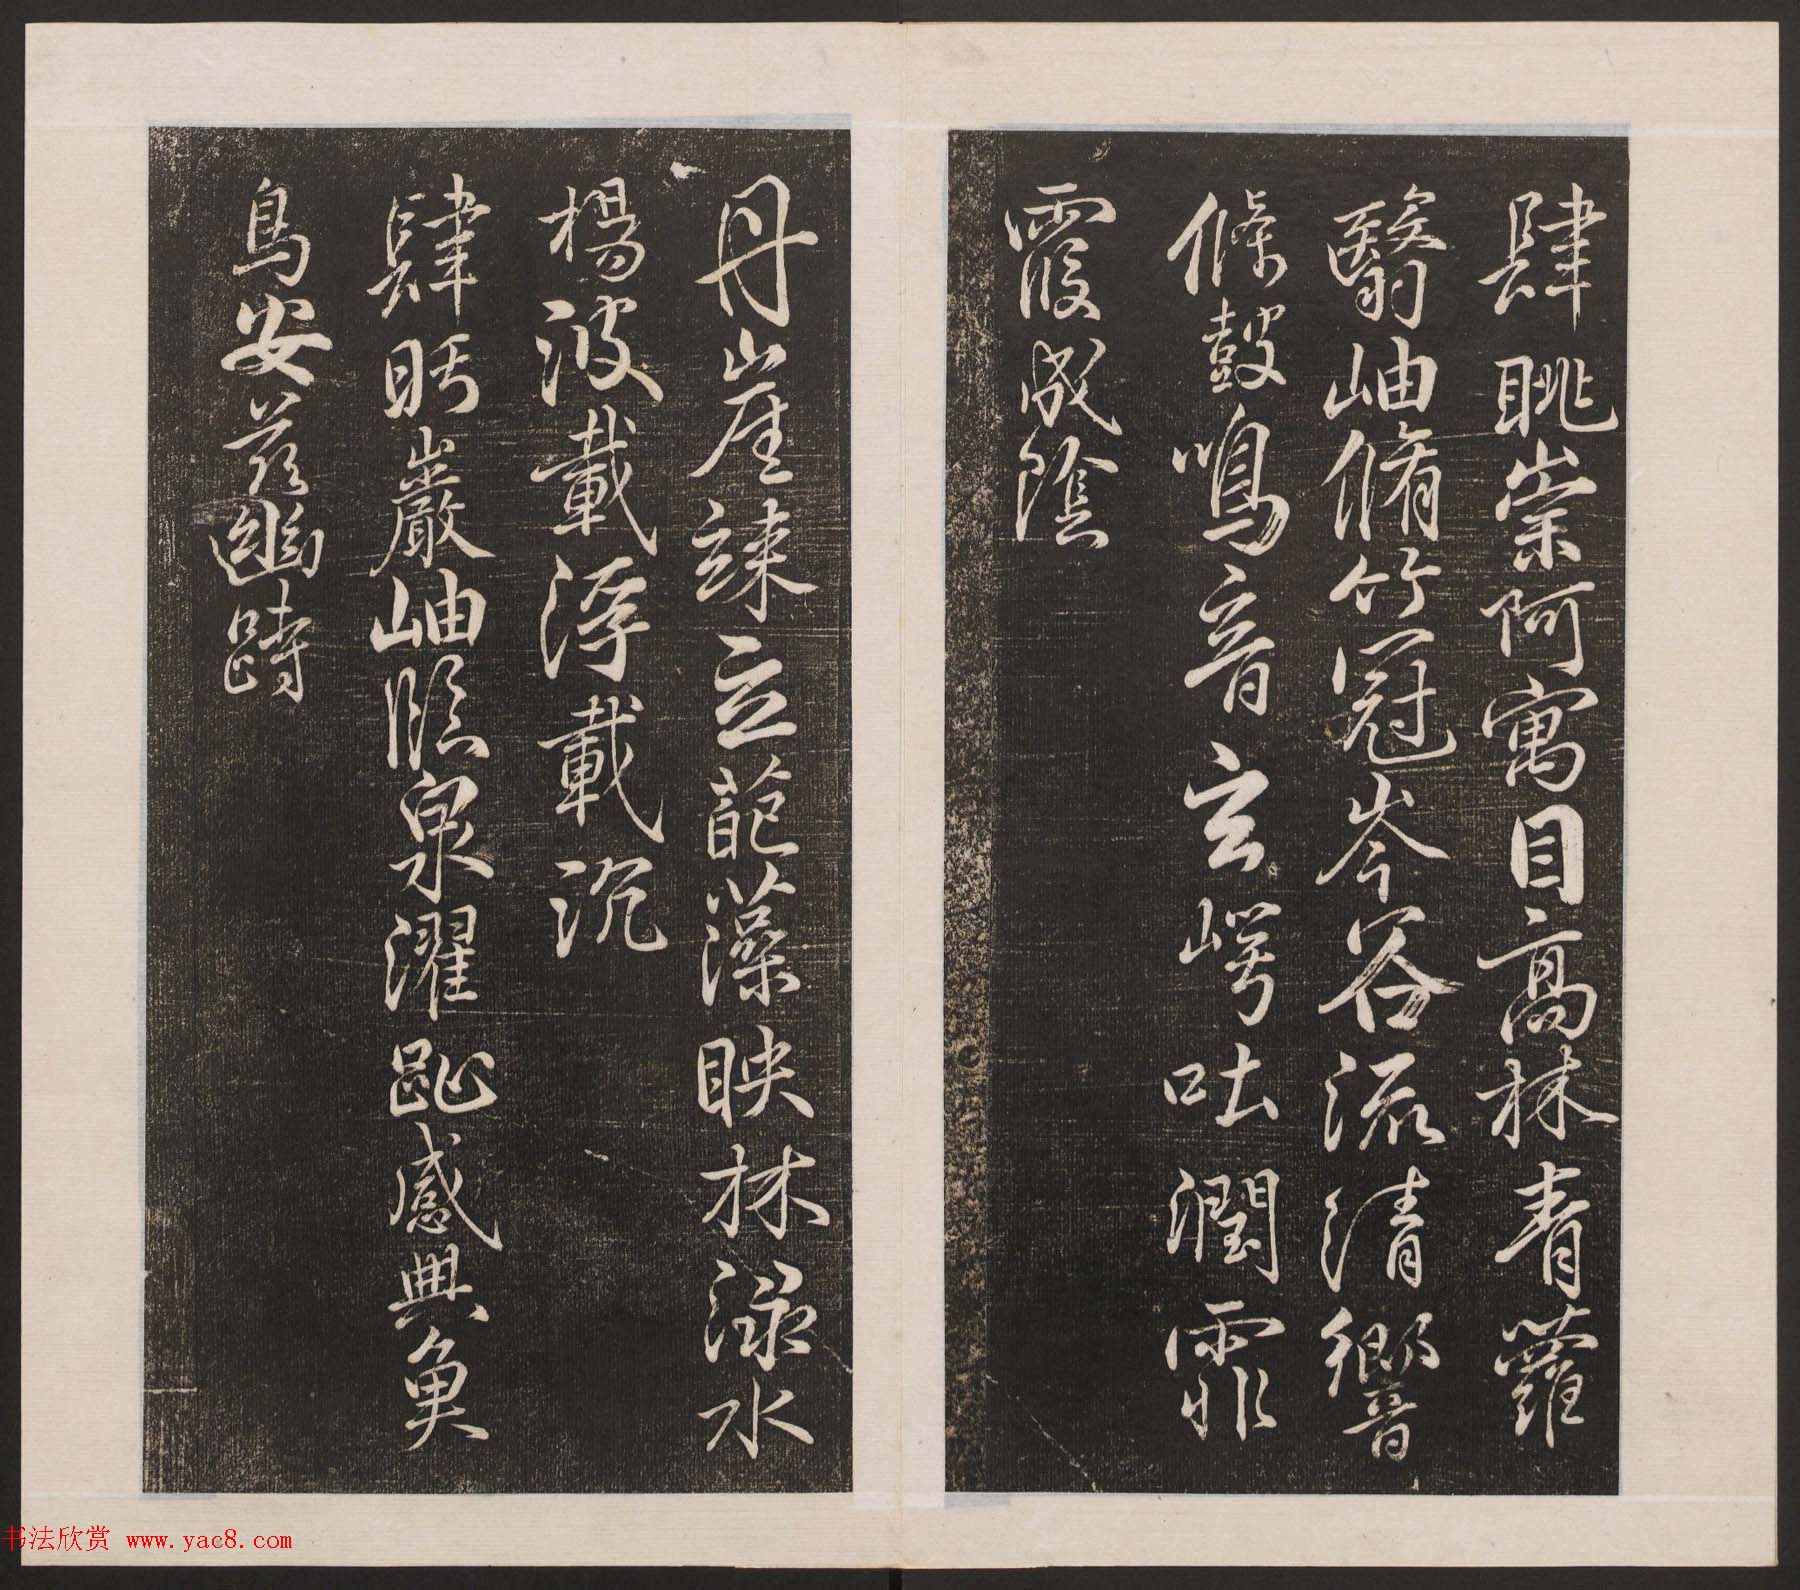 肆眺崇阿寓目高林青蘿
翳岫脩竹冠岑谷流清響
條鼓鳴音玄崿吐潤霏
霧成陰
丹崖竦立葩藻映林淥水
揚波載浮載沉
肆眄巖岫臨泉濯趾感興魚
鳥安茲幽跱
书法欣赏 www.yac8.com